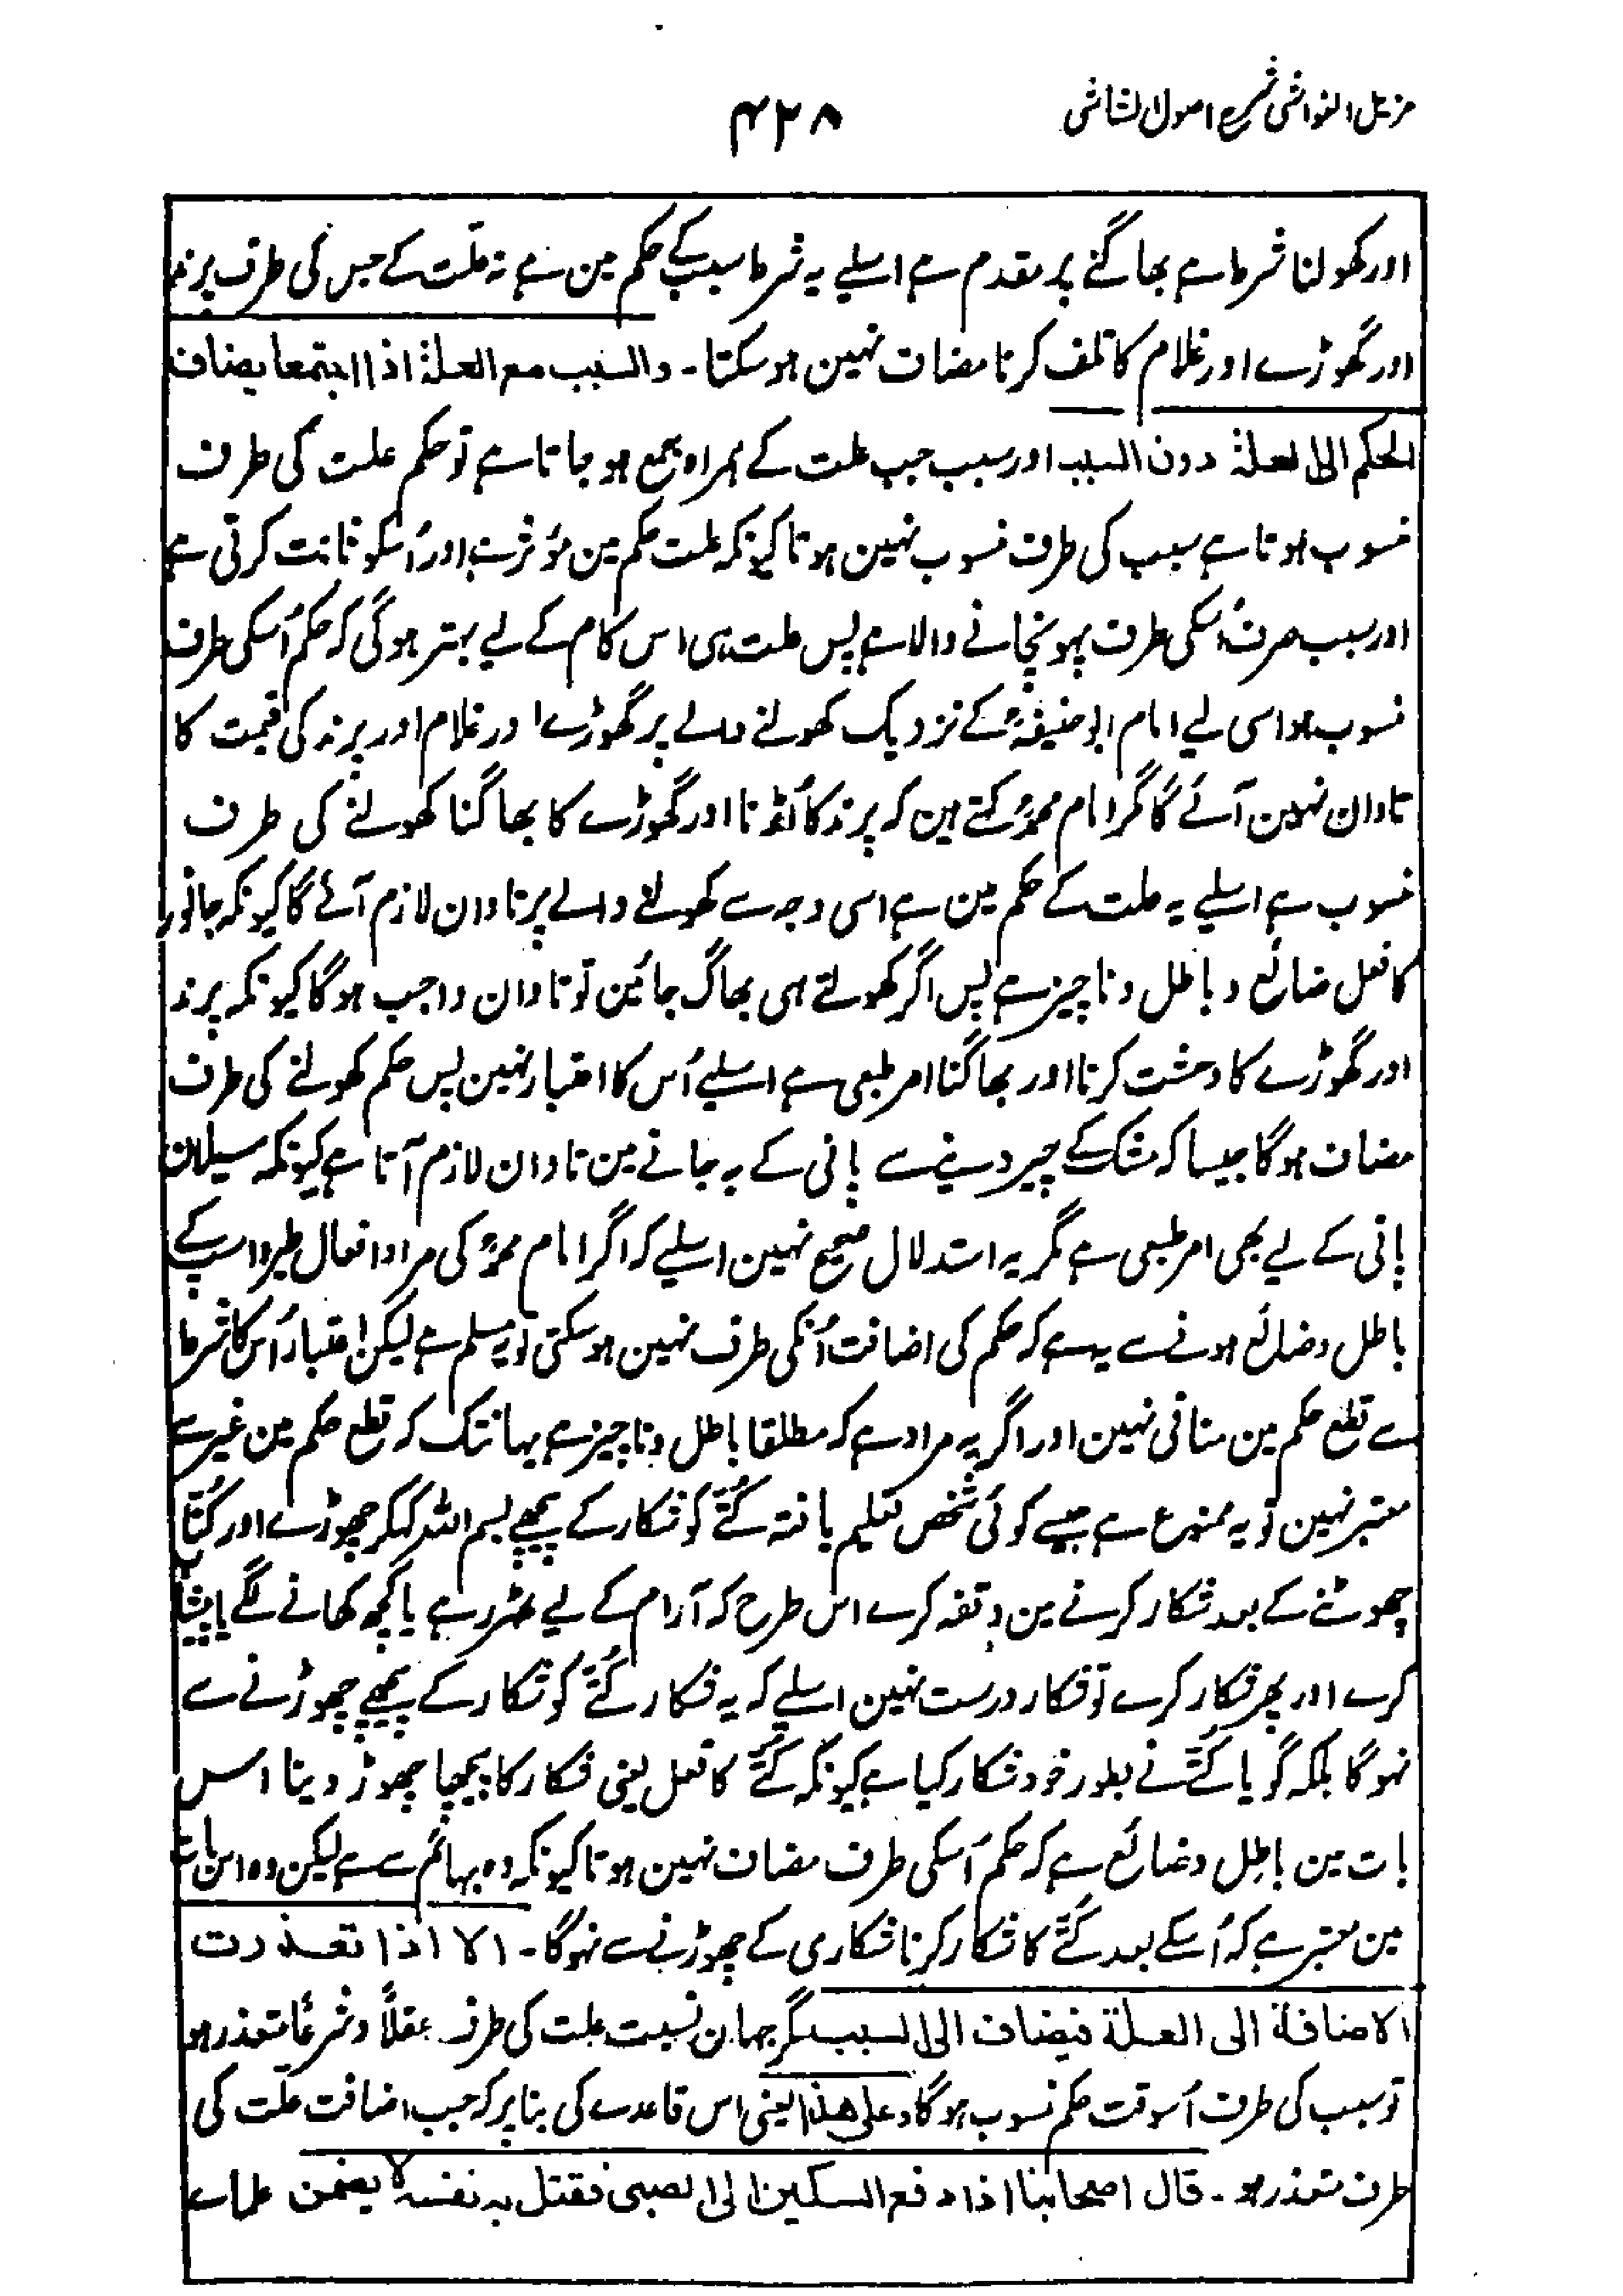 مزیل الغواشی شرح اصول الشاشی
۴۲۸
اور کھولنا شرط ہے بھاگنے پر مقدم ہے اسلیے یہ شرط سبب کے حکم مین ہے نہ علّت کے جس کی طرف پرند
اور گھوڑے اور غلام کا تلف کرنا مضاف نہین ہو سکتا۔ والسبب مع العلة اذا اجتمعا یضاف
الحکم الی العلة دون السبب اور سبب جب علت کے ہمراہ جمع ہو جاتا ہے تو حکم علت کی طرف
منسوب ہوتا ہے سبب کی طرف منسوب نہین ہوتا کیونکہ علت حکم مین مؤثر ہے اور اُسکو ثابت کرتی ہے
اور سبب صرف اُسکی طرف پہونچانے والا ہے پس علت ہی اس کام کے لیے بہتر ہوگی کہ حکم اُسکی طرف
منسوب ہو اسی لیے امام ابو حنیفہؒ کے نزدیک کھولنے والے پر گھوڑے اور غلام اور پرند کی قیمت کا
تاوان نہین آئے گا مگر امام محمدؒ کہتے ہین کہ پرند کا اُڑنا اور گھوڑے کا بھاگنا کھولنے کی طرف
منسوب ہے اسلیے یہ علت کے حکم مین ہے اسی وجہ سے کھولنے والے پر تاوان لازم آئے گا کیونکہ جانور
کا فعل ضائع و باطل و ناچیز ہے پس اگر کھولتے ہی بھاگ جائین تو تاوان واجب ہوگا کیونکہ پرند
اور گھوڑے کا وحشت کرنا اور بھاگنا امر طبعی ہے اسلیے اُس کا اعتبار نہین پس حکم کھولنے کی طرف
مضاف ہوگا جیسا کہ مشک کے چیر دینے سے پانی کے بہ جانے مین تاوان لازم آتا ہے کیونکہ سیلان
پانی کے لیے بھی امر طبعی ہے مگر یہ استدلال صحیح نہین اسلیے کہ اگر امام محمدؒ کی مراد افعال طیر و اسپ کے
باطل و ضائع ہونے سے یہ ہے کہ حکم کی اضافت اُنکی طرف نہین ہو سکتی تو یہ مسلم ہے لیکن اعتبار اُس کا شرط
سے قطع حکم مین منافی نہین اور اگر یہ مراد ہے کہ مطلقا باطل و ناچیز ہے یہانتک کہ قطع حکم مین غیر سے
معتبر نہین تو یہ ممنوع ہے جیسے کوئی شخص تعلیم یافتہ کُتّے کو شکار کے پیچھے بسم اللہ کہکر چھوڑے اور کُتّا
چھوٹنے کے بعد شکار کرنے مین وقفہ کرے اس طرح کہ آرام کے لیے ٹھہر رہے یا کچھ کھانے لگے یا پیشاب
کرے اور پھر شکار کرے تو شکار درست نہین اسلیے کہ یہ شکار کُتّے کو شکار کے پیچھے چھوڑنے سے
نہوگا بلکہ گویا کُتّے نے بطور خود شکار کیا ہے کیونکہ کُتّے کا فعل یعنی شکار کا پیچھا چھوڑ دینا اس
بات مین باطل و ضائع ہے کہ حکم اُسکی طرف مضاف نہین ہوتا کیونکہ وہ بہائم سے ہے لیکن وہ اس بات
مین معتبر ہے کہ اُسکے بعد کُتّے کا شکار کرنا شکاری کے چھوڑنے سے نہوگا۔ الا اذا تعذرت
الاضافة الی العلة فیضاف الی السبب مگر جہان نسبت علت کی طرف عقلاً و شرعاً متعذر ہو
تو سبب کی طرف اُسوقت حکم منسوب ہوگا وعلی ھذا یعنی اس قاعدے کی بنا پر کہ جب اضافت علّت کی
طرف متعذر ہو۔ قال اصحابنا اذا دفع السکین الی الصبی فقتل بہ نفسہ لا یضمن علماے